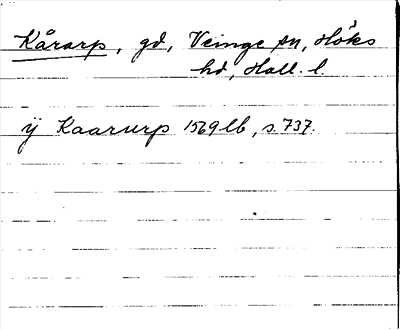 Kårarp, gd, Veinge sn, Höks
hd, Hall. l.
ÿ Kaarurp 1569 lb, s. 737.